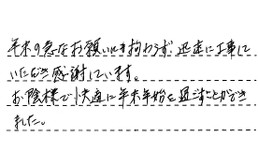 年末の急なお願いにも拘わらず、迅速に工事して
いただき感謝しています。
お陰様で快適に年末年始を過すことができ
ました。